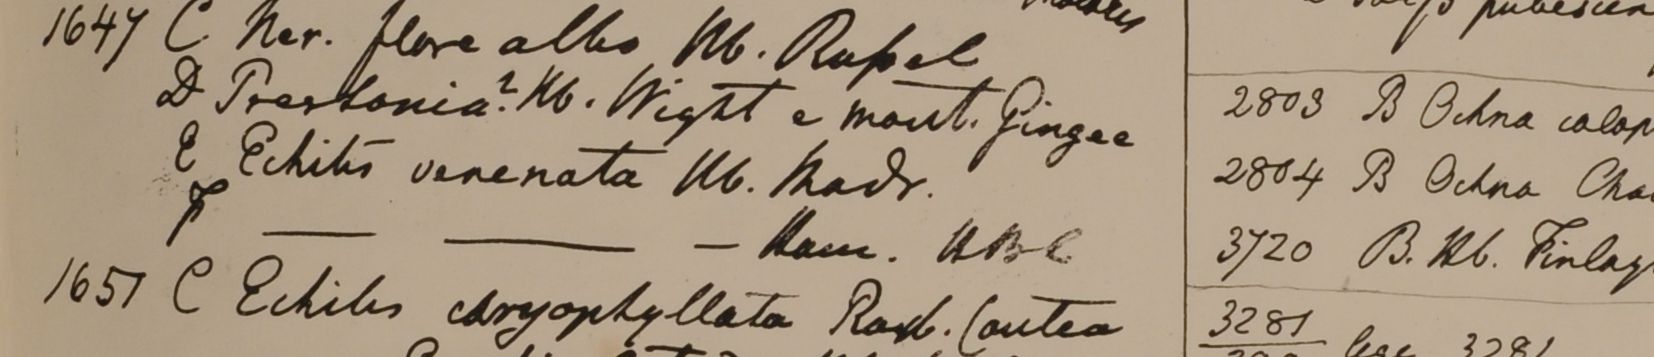 1647 C Ner. flore albo Hb. Russel
D Prestonia? Hb. Wight e mont. Gingee
E Echites venenata Hb. Madr.
F — — — Ham. HBC
1651 C Echites caryophyllata Roxb. (antea
2803 B Ochna
2804 B Ochna
3720 B. Hb.
3281
3281